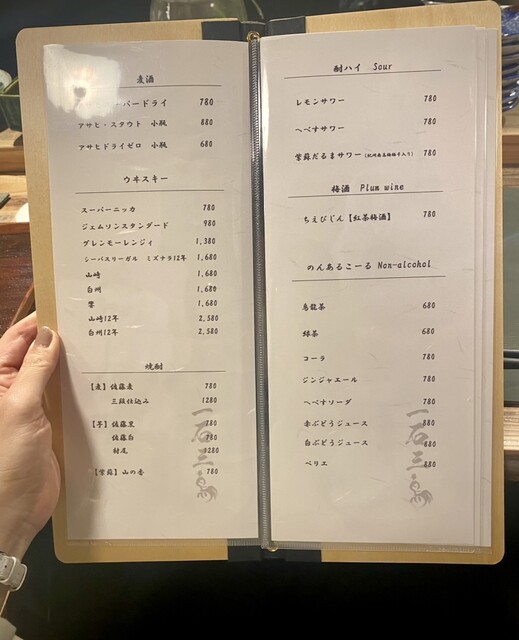 麦酒
ーパードライ 780
アサヒ・スタウト 小瓶 880
アサヒドライゼロ 小瓶 680
ウヰスキー
スーパーニッカ 780
ジェムソンスタンダード 980
グレンモーレンジィ 1,380
シーバスリーガル ミズナラ12年 1,680
山崎 1,680
白州 1,680
響 1,680
山崎12年 2,580
白州12年 2,580
焼酎
【麦】佐藤麦 780
三段仕込み 1280
【芋】佐藤黒 780
佐藤白 780
村尾 1280
【紫蘇】山の香 780
酎ハイ Sour
レモンサワー 780
へべすサワー 780
紫蘇だるまサワー(紀州南高梅梅干入り) 780
梅酒 Plum wine
ちえびじん【紅茶梅酒】 780
のんあるこーる Non-alcohol
烏龍茶 680
緑茶 680
コーラ 780
ジンジャエール 780
へべすソーダ 780
赤ぶどうジュース 880
白ぶどうジュース 880
ペリエ 880